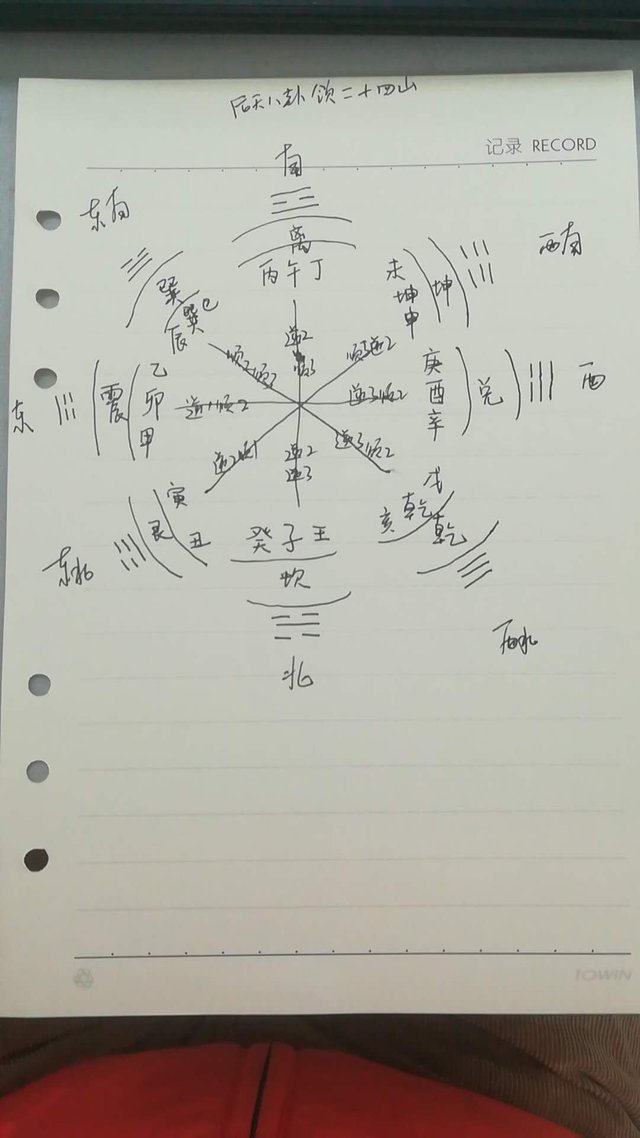 后天八卦领二十四山
记录 RECORD
南
东南
西南
离
丙午丁
巽
辰巽巳
未坤申
坤
逆2
顺3逆2
东
震
乙卯甲
逆1顺2
逆3顺2
庚酉辛
兑
西
逆2
逆3
逆3顺2
东北
艮
寅
丑
癸子王
坎
戌
乾
亥
乾
西北
北
TOWiN